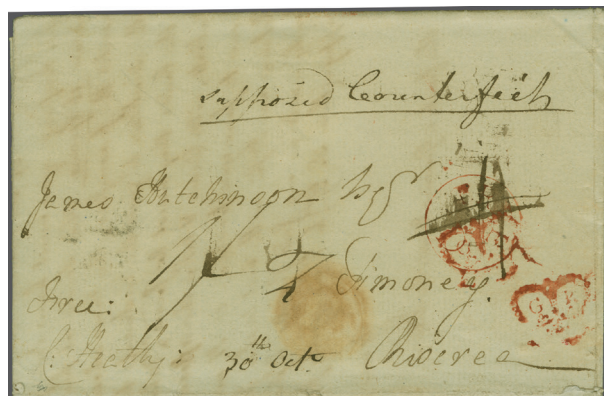 supposed Counterfeit
James Hutchinson Esqr
Timoney
free:
30th Octr Roscrea